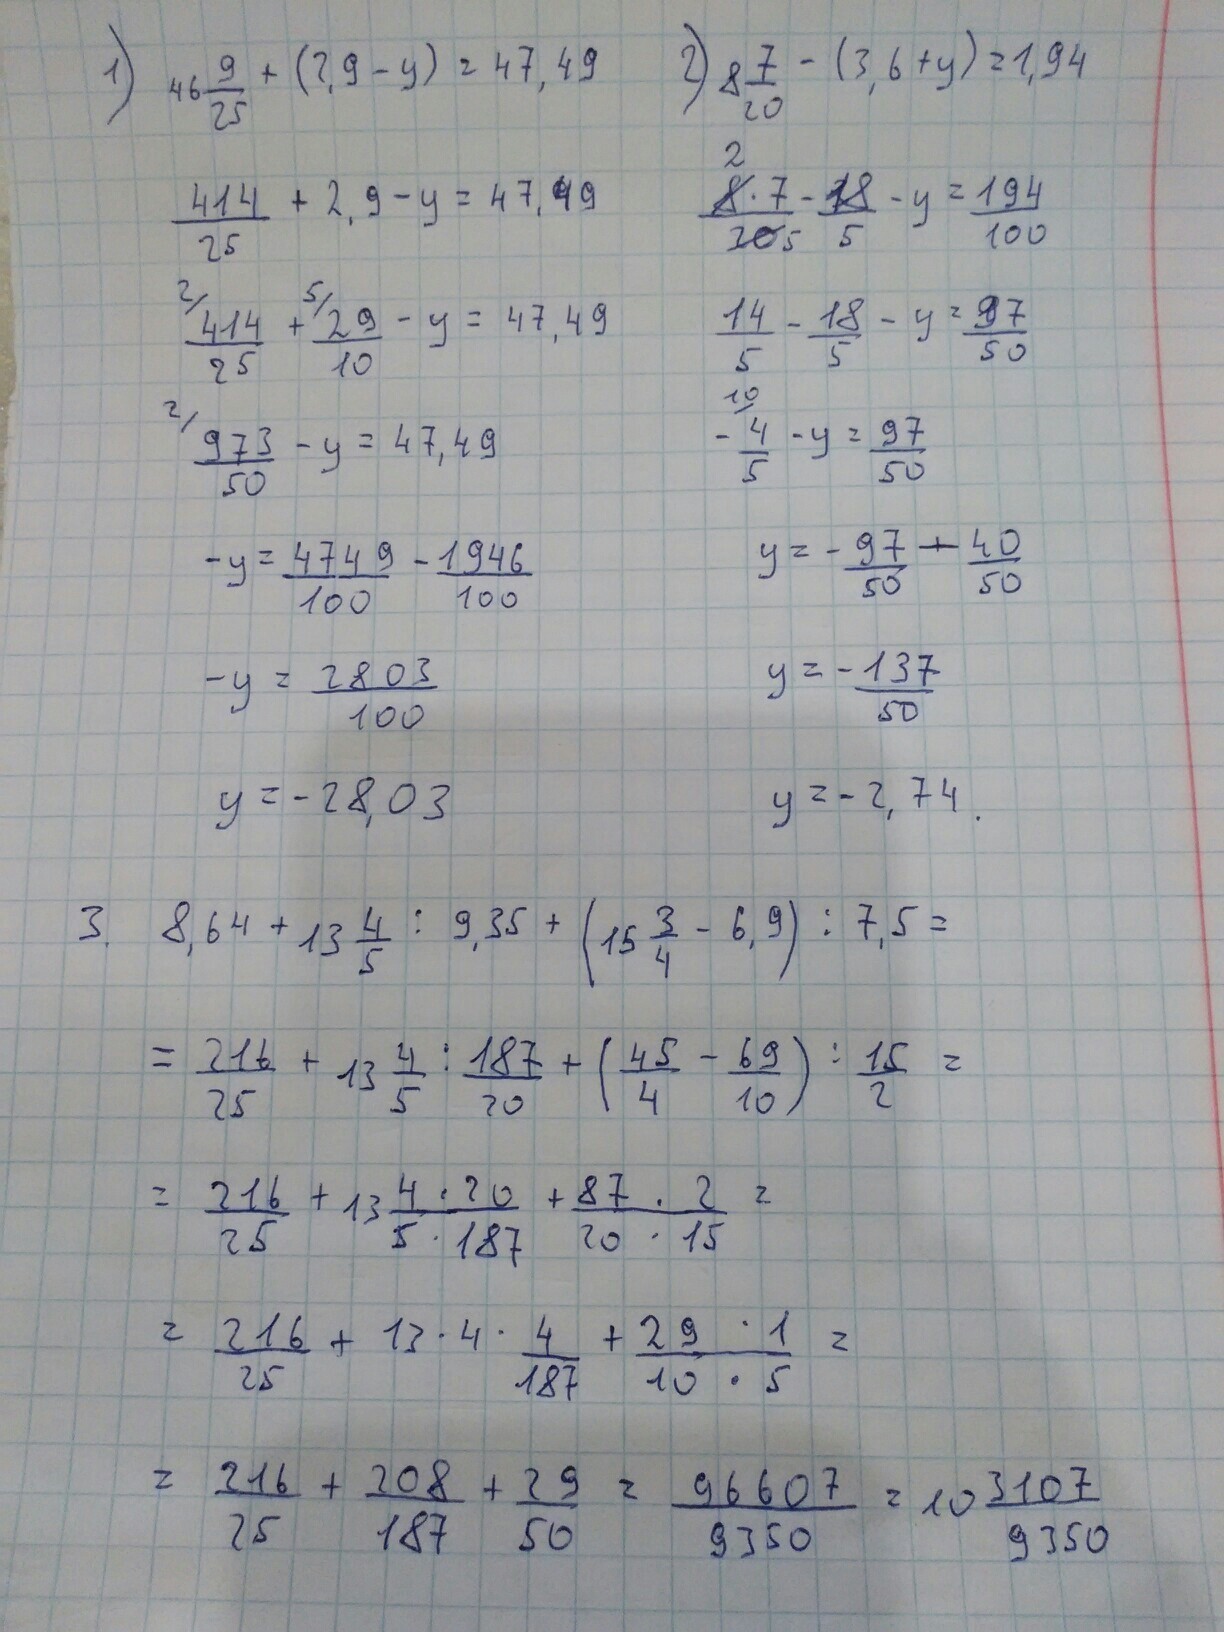 1) 46 9/25 + (2,9 - y) = 47,49
414/25 + 2,9 - y = 47,49
2/ 414/25 + 5/ 29/10 - y = 47,49
2/ 973/50 - y = 47,49
-y = 4749/100 - 1946/100
-y = 2803/100
y = -28,03
2) 8 7/20 - (3,6 + y) = 1,94
2
8·7/20 5 - 18/5 - y = 194/100
14/5 - 18/5 - y = 97/50
10/
-4/5 - y = 97/50
y = -97/50 + 40/50
y = -137/50
y = -2,74.
3. 8,64 + 13 4/5 : 9,35 + (15 3/4 - 6,9) : 7,5 =
= 216/25 + 13 4/5 : 187/20 + (45/4 - 69/10) : 15/2 =
= 216/25 + 13 4·20/5·187 + 87·2/20·15 =
= 216/25 + 13·4·4/187 + 29·1/10·5 =
= 216/25 + 208/187 + 29/50 = 96607/9350 = 10 3107/9350